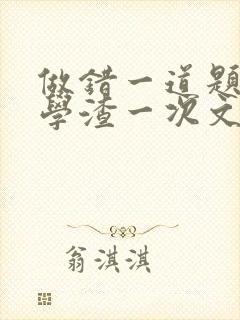 做錯一道題
學渣一次文
翁淇淇